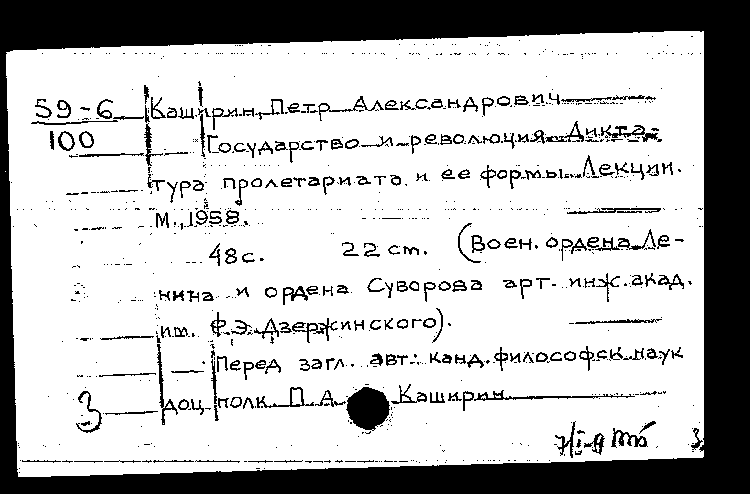 59-6 Каширин, Петр Александрович
100 Государство и революция. Дикта-
тура пролетариата и ее формы. Лекции.
М., 1958.
48 с. 22 см. (Воен. ордена Ле-
нина и ордена Суворова арт. инж. акад.
им. Ф.Э. Дзержинского).
Перед загл. авт.: канд. философск. наук
3 доц. полк. П. А. Каширин